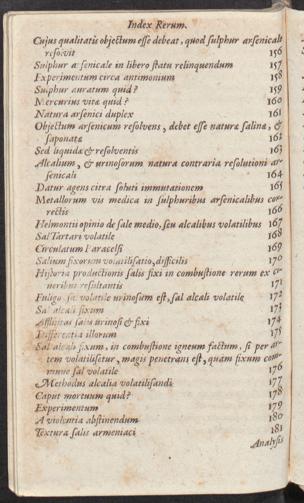 Index Rerum.
Cujus qualitatis objectum esse debeat, quod sulphur arsenicale
resolvit 156
Sulphur arsenicale in libero statu relinquendum 157
Experimentum circa antimonium 158
Sulphur auratum quid? 159
Mercurius vitæ quid? 160
Natura arsenici duplex 161
Objectum arsenicum resolvens, debet esse naturæ salinæ, &
saponatæ 162
Sed liquida & resolventis 163
Alcalium, & urinosorum natura contraria resolutioni ar-
senicali 164
Datur agens citra soluti immutationem 165
Metallorum vis medica in sulphuribus arsenicalibus cor-
rectis 166
Helmontii opinio de sale medio, seu alcalibus volatilibus 167
Sal Tartari volatile 168
Circulatum Paracelsi 169
Salium fixorum volatilisatio, difficilis 170
Historia productionis salis fixi in combustione rerum ex ci-
neribus resultantis 171
Fuligo, sal volatile urinosum est, sal alcali volatile 172
Sal alcali fixum 173
Affinitas salis urinosi & fixi 174
Differentia illorum 175
Sal alcali fixum, in combustione igneum factum, si per ar-
tem volatilisetur, magis penetrans est, quam fixum com-
mune sal volatile 176
Methodus alcalia volatilisandi 177
Caput mortuum quid? 178
Experimentum 179
A violentia abstinendum 180
Textura salis armeniaci 181
Analysis